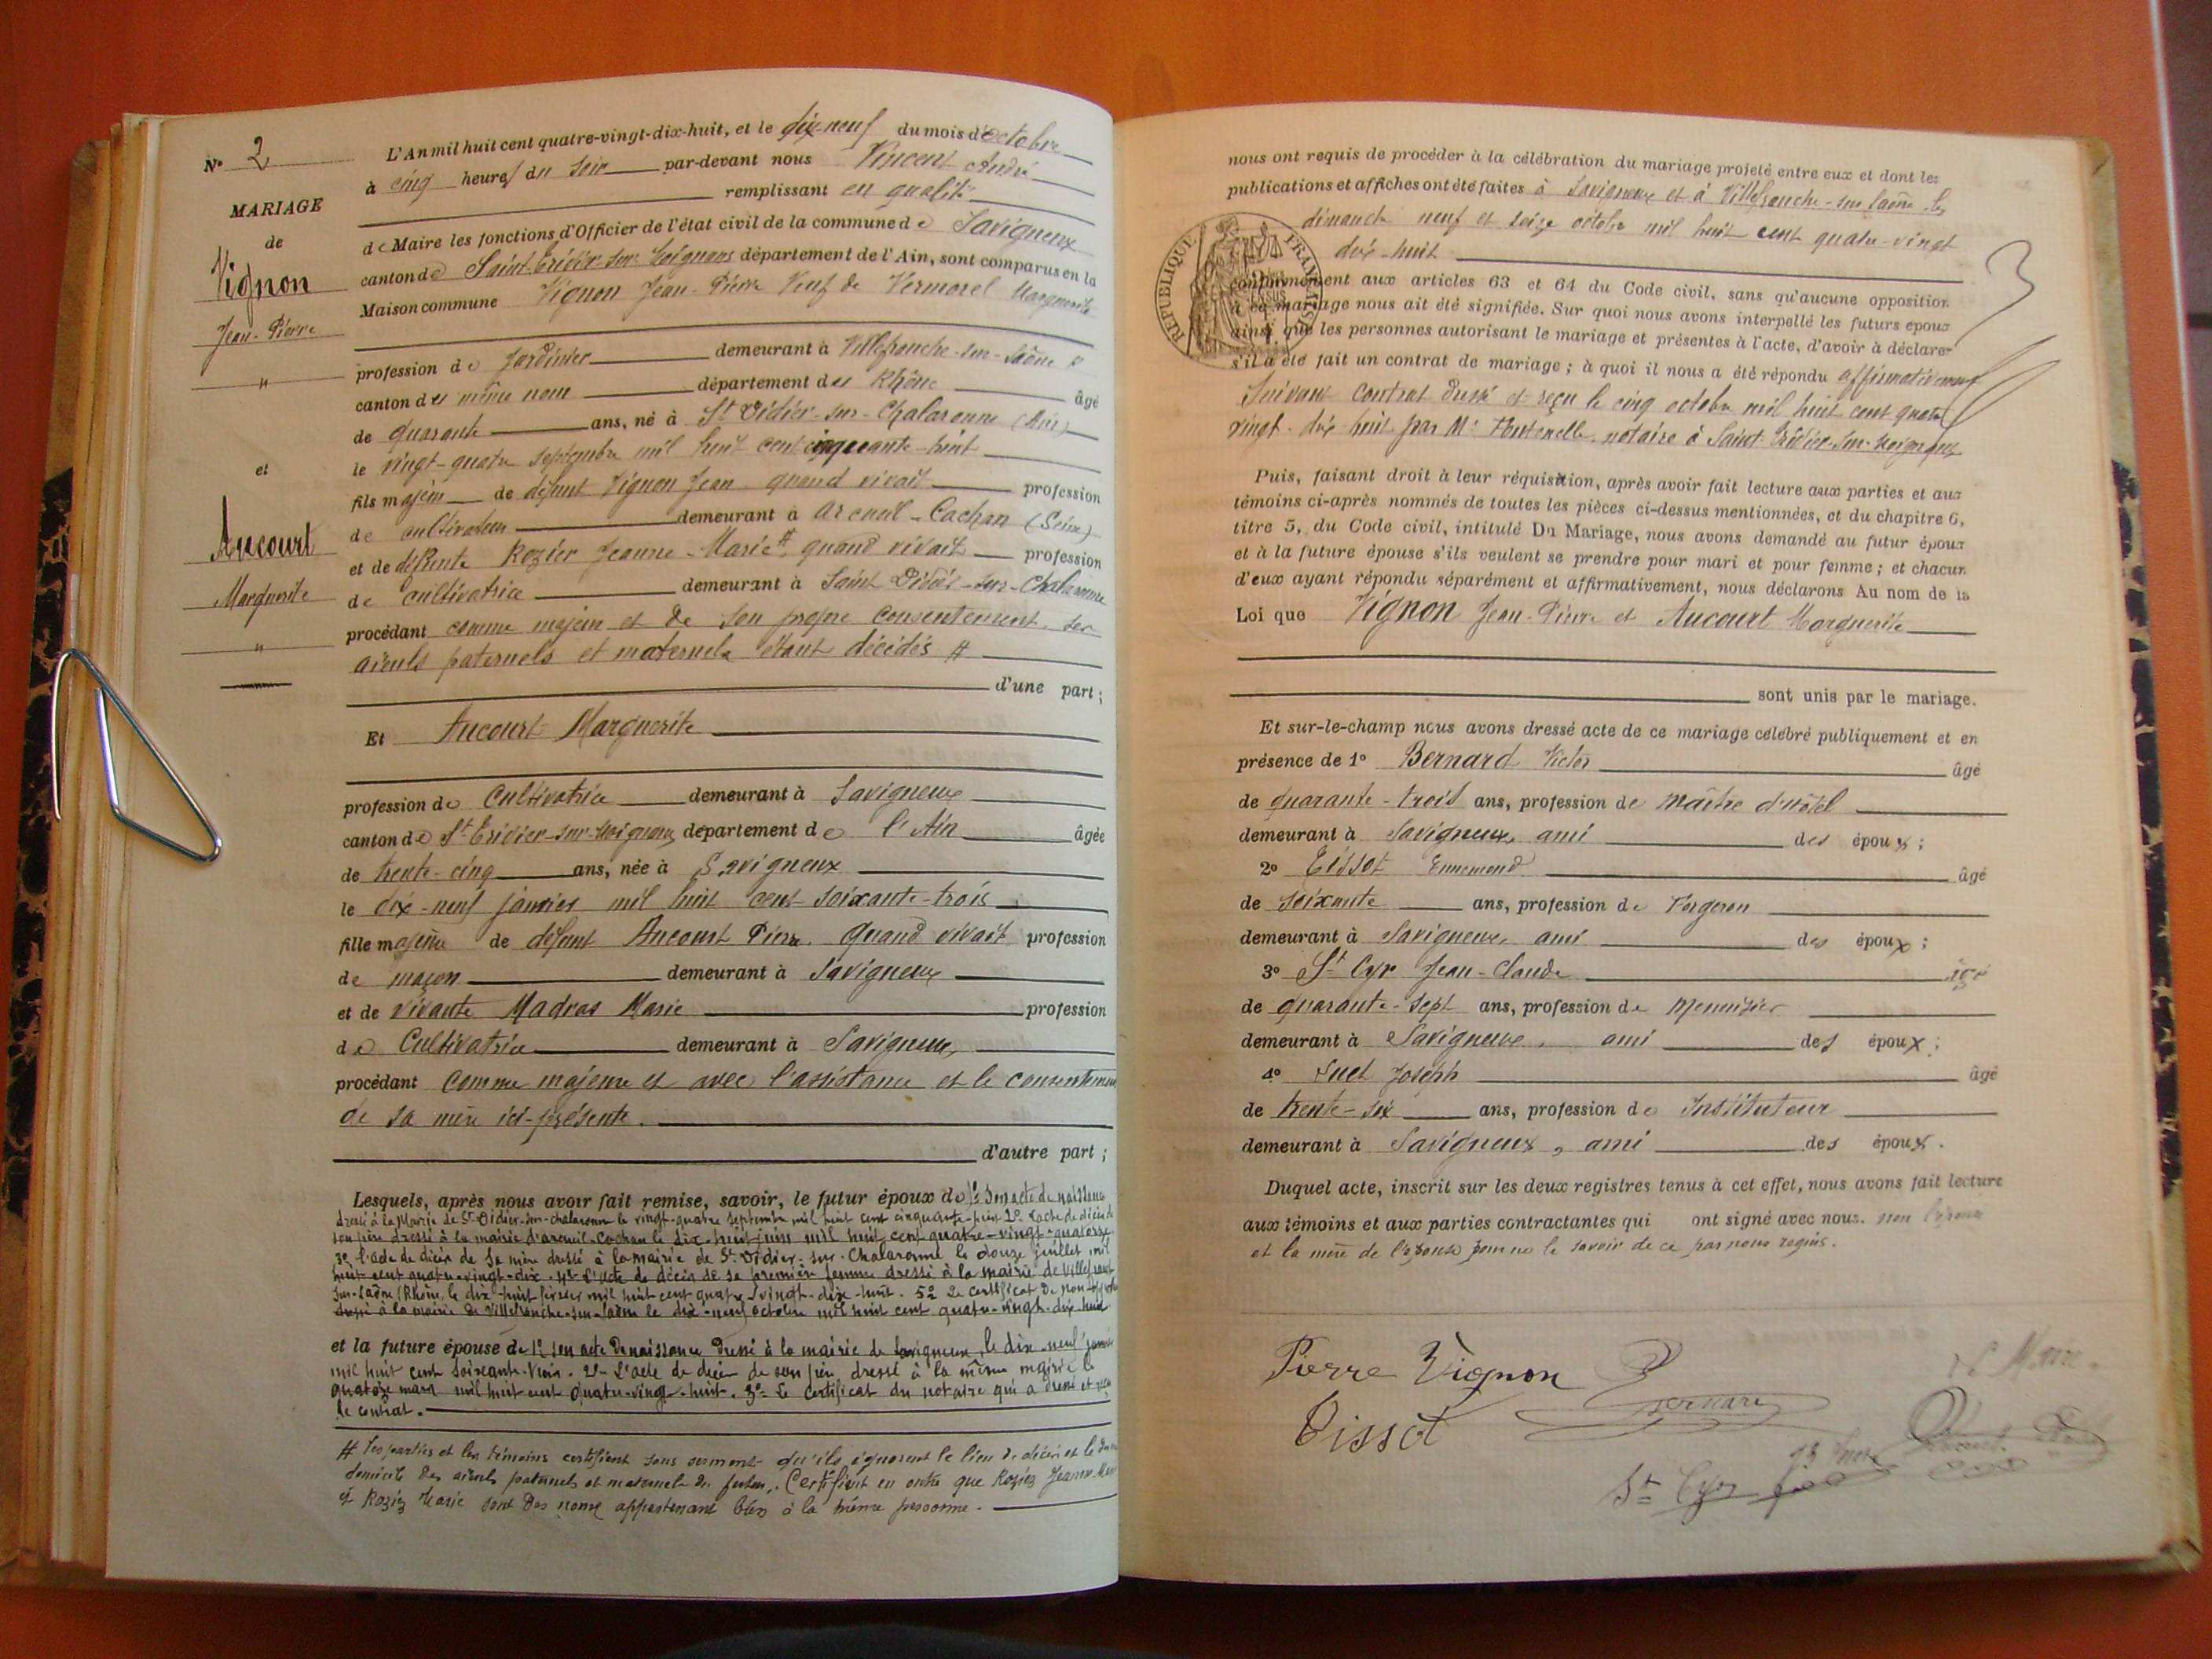 N° 2
MARIAGE
de
Vignon
Jean-Pierre
"
et
Aucourt
Marguerite
"
L'An mil huit cent quatre-vingt-dix-huit, et le dix-neuf du mois d'octobre
à cinq heures du soir par-devant nous Vincent André
remplissant en qualité
de Maire les fonctions d'Officier de l'état civil de la commune de Savigneux
canton de Saint-Trivier-sur-Moignans département de l'Ain, sont comparus en la
Maison commune Vignon Jean-Pierre Veuf de Vermorel Marguerite
profession de Jardinier demeurant à Villefranche-sur-Saône
canton du même nom département du Rhône âgé
de quarante ans, né à St Didier-sur-Chalaronne (Ain)
le vingt-quatre septembre mil huit cent cinquante-huit
fils majeur de défunt Vignon Jean quand vivait profession
de cultivateur demeurant à Arcueil-Cachan (Seine)
et de défunte Rozier Jeanne-Marie # quand vivait profession
de cultivatrice demeurant à Saint Didier-sur-Chalaronne
procédant comme majeur et de son propre consentement, ses
aïeuls paternels et maternels étant décédés #
d'une part ;
Et Aucourt Marguerite
profession de Cultivatrice demeurant à Savigneux
canton de St-Trivier-sur-Moignans département de l'Ain âgée
de trente-cinq ans, née à Savigneux
le dix-neuf janvier mil huit cent soixante-trois
fille majeure de défunt Aucourt Pierre quand vivait profession
de maçon demeurant à Savigneux
et de vivante Madras Marie profession
de Cultivatrice demeurant à Savigneux
procédant comme majeure et avec l'assistance et le consentement
de sa mère ici-présente.
d'autre part ;
Lesquels, après nous avoir fait remise, savoir, le futur époux de 1° Son acte de naissance
dressé à la Mairie de St-Didier-sur-chalaronne le vingt-quatre septembre mil huit cent cinquante-huit 2° l'acte de décès de
son père dressé à la mairie d'arcueil-Cachan le dix-huit juin mil huit cent quatre-vingt-quatorze
3° l'acte de décès de sa mère dressé à la mairie de St-Didier-sur-Chalaronne le douze juillet mil
huit cent quatre-vingt-dix. 4° L'acte de décès de sa première femme dressé à la mairie de Villefranche
sur-Saône (Rhône) le dix-huit février mil huit cent quatre-vingt-dix-huit. 5° Le certificat de non-opposition
dressé à la mairie de Villefranche-sur-Saône le dix-neuf octobre mil huit cent quatre-vingt-dix-huit
et la future épouse de 1° son acte de naissance dressé à la mairie de Savigneux, le dix-neuf janvier
mil huit cent soixante-trois. 2° L'acte de décès de son père dressé à la même mairie le
quatorze mars mil huit cent quatre-vingt-huit. 3° Le certificat du notaire qui a dressé et reçu
le contrat.
# Les parties et les témoins certifient sous serment qu'ils ignorent le lieu de décès et le dernier
domicile des aïeuls paternels et maternels du futur. Certifient en outre que Rozier Jeanne-Marie
et Rozier Marie sont des noms appartenant bien à la même personne.
nous ont requis de procéder à la célébration du mariage projeté entre eux et dont les
publications et affiches ont été faites à Savigneux et à Villefranche-sur-Saône les
dimanche neuf et seize octobre mil huit cent quatre-vingt
dix-huit
RÉPUBLIQUE FRANÇAISE
conformément aux articles 63 et 64 du Code civil, sans qu'aucune opposition
à ce mariage nous ait été signifiée. Sur quoi nous avons interpellé les futurs époux
ainsi que les personnes autorisant le mariage et présentes à l'acte, d'avoir à déclarer
s'il a été fait un contrat de mariage ; à quoi il nous a été répondu affirmativement
Suivant contrat dressé et reçu le cinq octobre mil huit cent quatre
vingt-dix-huit par Me Fontenelle, notaire à Saint-Trivier-sur-Moignans
3
Puis, faisant droit à leur réquisition, après avoir fait lecture aux parties et aux
témoins ci-après nommés de toutes les pièces ci-dessus mentionnées, et du chapitre 6,
titre 5, du Code civil, intitulé Du Mariage, nous avons demandé au futur époux
et à la future épouse s'ils veulent se prendre pour mari et pour femme ; et chacun
d'eux ayant répondu séparément et affirmativement, nous déclarons Au nom de la
Loi que Vignon Jean-Pierre et Aucourt Marguerite
sont unis par le mariage.
Et sur-le-champ nous avons dressé acte de ce mariage célébré publiquement et en
présence de 1° Bernard Victor âgé
de quarante-trois ans, profession de maître d'hôtel
demeurant à Savigneux, ami des époux ;
2° Tissot Ennemond âgé
de soixante ans, profession de Vigneron
demeurant à Savigneux, ami des époux ;
3° St Cyr Jean-Claude âgé
de quarante-sept ans, profession de Menuisier
demeurant à Savigneux, ami des époux ;
4° Suet Joseph âgé
de trente-six ans, profession de Instituteur
demeurant à Savigneux, ami des époux.
Duquel acte, inscrit sur les deux registres tenus à cet effet, nous avons fait lecture
aux témoins et aux parties contractantes qui ont signé avec nous. non l'épouse
et la mère de l'épouse pour ne le savoir de ce par nous requis.
Pierre Vignon
Bernard
Tissot
St Cyr
Le Maire.